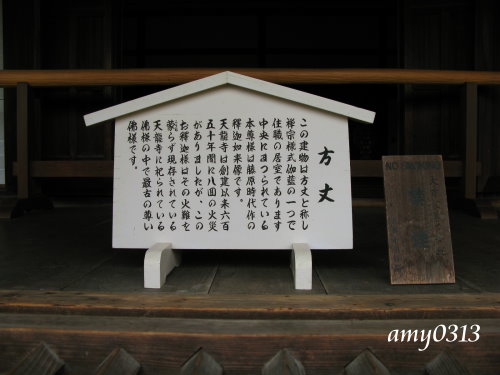 方丈
この建物は方丈と称し
禅宗様式伽藍の一つで
住職の居室であります
中央にまつられている
本尊様は藤原時代作の
釋迦如来像です。
天龍寺は創建以来六百
五十年間に八回の火災
がありましたが、この
お釋迦様はその火難を
蒙らず現存されている
天龍寺に祀られている
佛様の中で最古の尊い
佛様です。
NO SMOKING
amy0313